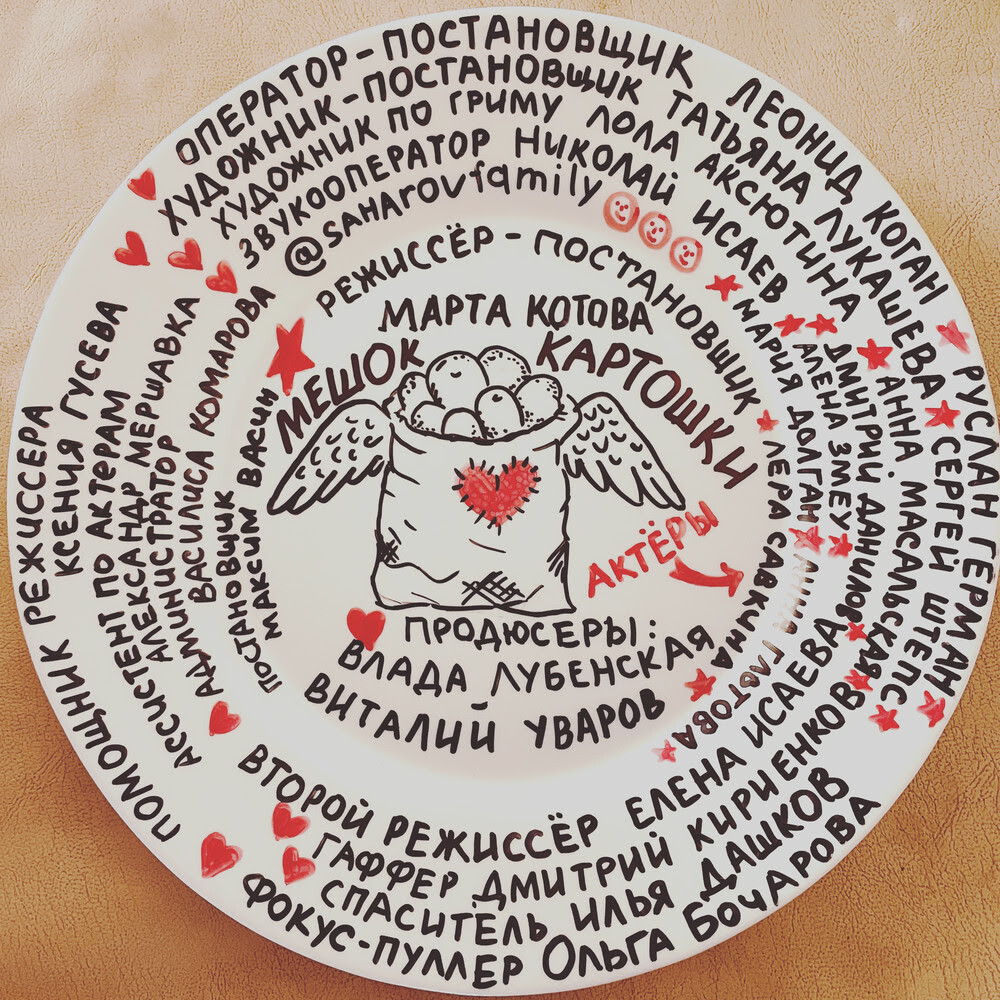 ОПЕРАТОР-ПОСТАНОВЩИК ЛЕОНИД КОГАН
ХУДОЖНИК-ПОСТАНОВЩИК ТАТЬЯНА ЛУКАШЕВА
ХУДОЖНИК ПО ГРИМУ ЛОЛА АКСЮТИНА
ЗВУКООПЕРАТОР НИКОЛАЙ ИСАЕВ
@SAHAROVfamily
РЕЖИССЁР-ПОСТАНОВЩИК
МАРТА КОТОВА
МЕШОК КАРТОШКИ
АКТЁРЫ
РУСЛАН ГЕРМАН
СЕРГЕЙ ШТЕПС
АННА МАСАЛЬСКАЯ
ДМИТРИЙ ДАНИЛОВ
АЛЕНА ЗМЕУ
МАРИЯ ДОЛГАН
ЛЕРА САВКИНА
ГЛОТОВА
ПРОДЮСЕРЫ:
ВЛАДА ЛУБЕНСКАЯ
ВИТАЛИЙ УВАРОВ
ПОМОЩНИК РЕЖИССЕРА
КСЕНИЯ ГУСЕВА
АССИСТЕНТ ПО АКТЕРАМ
АЛЕКСАНДР МЕРШАВКА
АДМИНИСТРАТОР
ВАСИЛИСА КОМАРОВА
ПОСТАНОВЩИК
МАКСИМ ВАСИН
ВТОРОЙ РЕЖИССЁР ЕЛЕНА ИСАЕВА
ГАФФЕР ДМИТРИЙ КИРИЕНКОВ
СПАСИТЕЛЬ ИЛЬЯ ДАШКОВ
ФОКУС-ПУЛЛЕР ОЛЬГА БОЧАРОВА